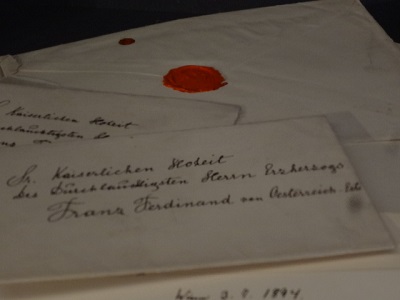 Kaiserlichen Hoheit
Durchlauchtigsten
Sr. Kaiserlichen Hoheit
des Durchlauchtigsten Herrn Erzherzogs
Franz Ferdinand von Oesterreich Este
Wien 3. 8. 1894